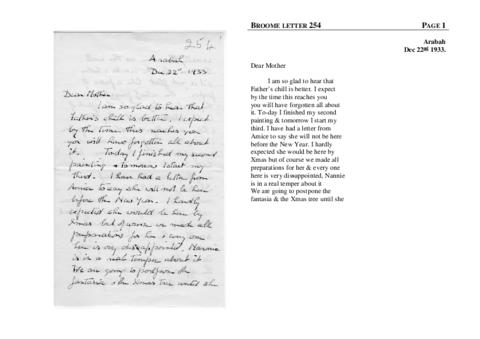 254
Arabah
Dec 22nd 1933
Dear Mother
I am so glad to hear that
Father's chill is better. I expect
by the time this reaches you
you will have forgotten all about
it. Today I finished my second
painting & tomorrow I start my
third. I have had a letter from
Amice to say she will not be here
before the New Year. I hardly
expected she would be here by
Xmas but of course we made all
preparations for her & every one
here is very disappointed, Nannie
is in a real temper about it
We are going to postpone the
fantasia & the Xmas tree until she
BROOME LETTER 254 PAGE 1
Arabah
Dec 22nd 1933.
Dear Mother
I am so glad to hear that
Father's chill is better. I expect
by the time this reaches you
you will have forgotten all about
it. To-day I finished my second
painting & tomorrow I start my
third. I have had a letter from
Amice to say she will not be here
before the New Year. I hardly
expected she would be here by
Xmas but of course we made all
preparations for her & every one
here is very disappointed, Nannie
is in a real temper about it
We are going to postpone the
fantasia & the Xmas tree until she